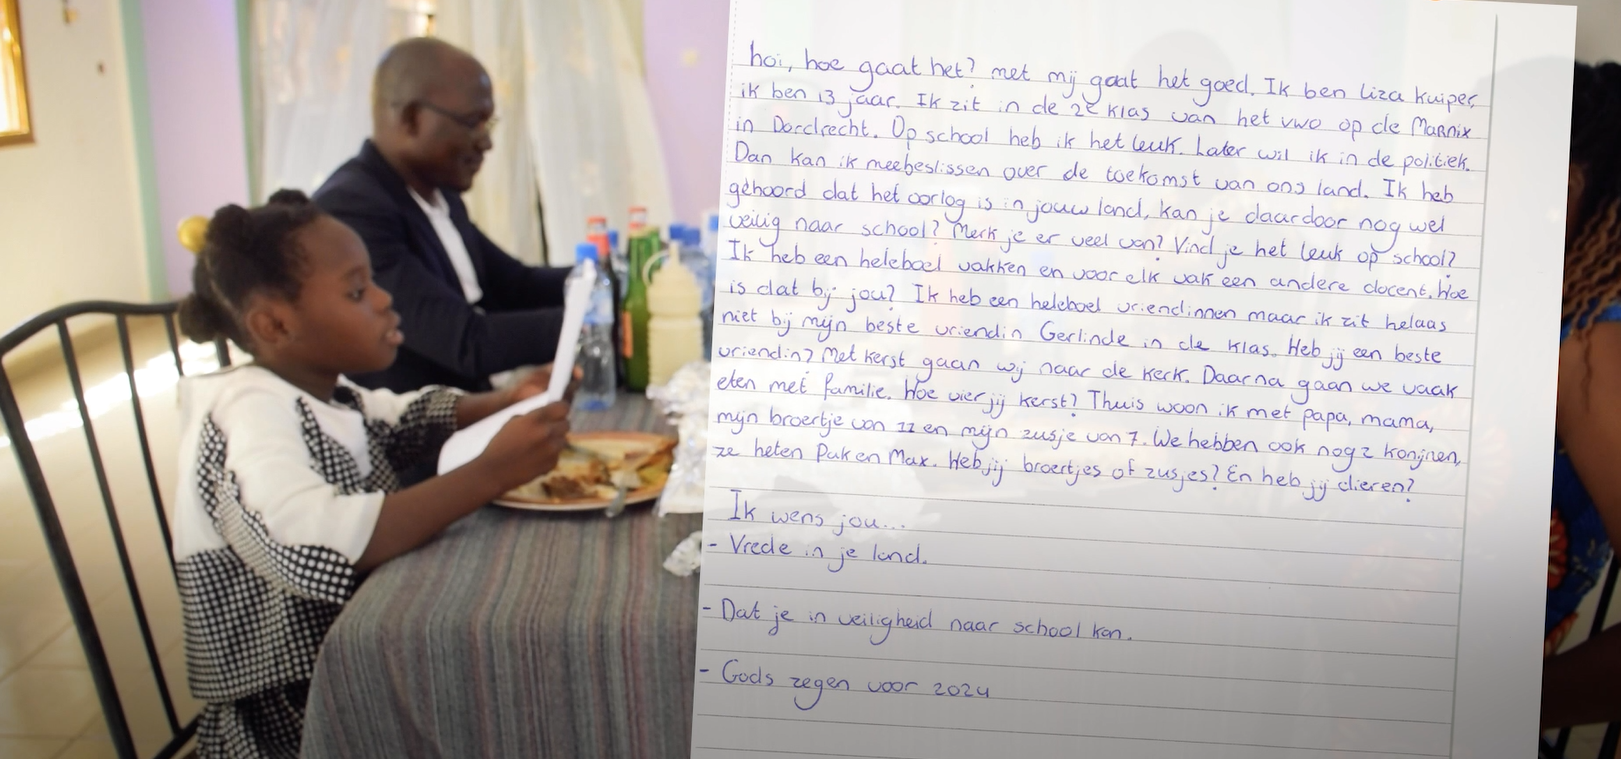 hoi, hoe gaat het? met mij gaat het goed. Ik ben Liza Kuiper,
ik ben 13 jaar. Ik zit in de 2e klas van het vwo op de Marnix
in Dordrecht. Op school heb ik het leuk. Later wil ik in de politiek.
Dan kan ik meebeslissen over de toekomst van ons land. Ik heb
gehoord dat het oorlog is in jouw land, kan je daardoor nog wel
veilig naar school? Merk je er veel van? Vind je het leuk op school?
Ik heb een heleboel vakken en voor elk vak een andere docent. Hoe
is dat bij jou? Ik heb een heleboel vriendinnen maar ik zit helaas
niet bij mijn beste vriendin Gerlinde in de klas. Heb jij een beste
vriendin? Met kerst gaan wij naar de kerk. Daarna gaan we vaak
eten met familie. Hoe vier jij kerst? Thuis woon ik met papa, mama,
mijn broertje van 11 en mijn zusje van 7. We hebben ook nog 2 konijnen,
ze heten Puk en Max. Heb jij broertjes of zusjes? En heb jij dieren?
Ik wens jou...
- Vrede in je land.
- Dat je in veiligheid naar school kan.
- Gods zegen voor 2024